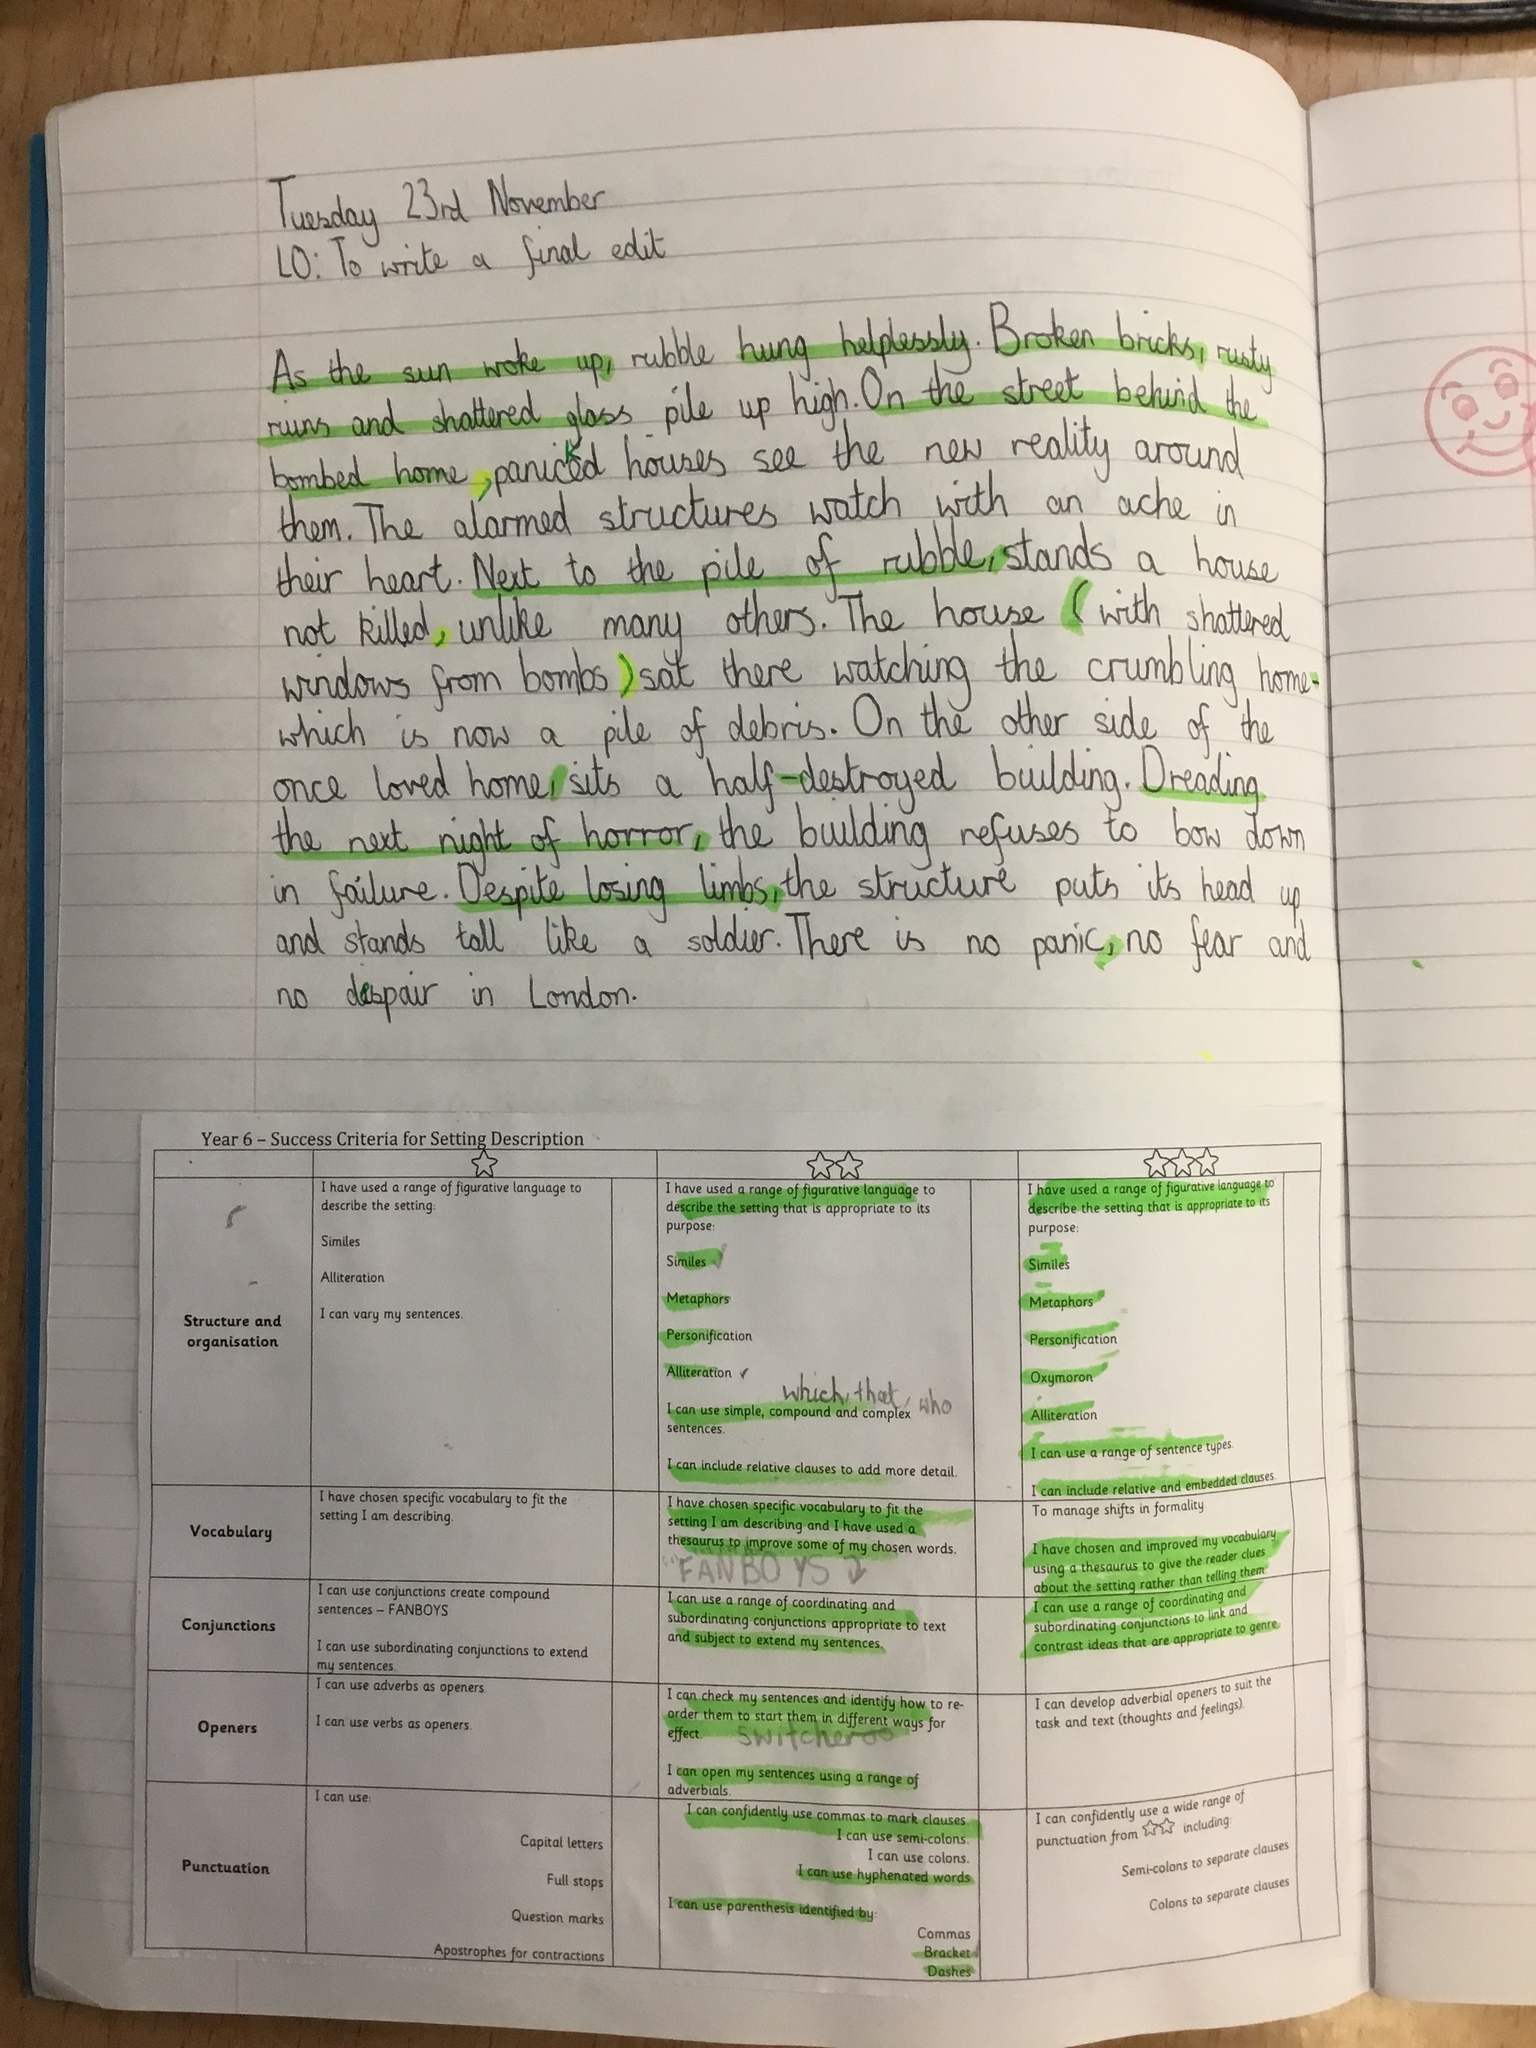 Tuesday 23rd November
LO: To write a final edit
As the sun woke up, rubble hung helplessly. Broken bricks, rusty
ruins and shattered glass pile up high. On the street behind the
bombed home, panicked houses see the new reality around
them. The alarmed structures watch with an ache in
their heart. Next to the pile of rubble, stands a house
not killed, unlike many others. The house (with shattered
windows from bombs) sat there watching the crumbling home-
which is now a pile of debris. On the other side of the
once loved home, sits a half-destroyed building. Dreading
the next night of horror, the building refuses to bow down
in failure. Despite losing limbs, the structure puts its head up
and stands tall like a soldier. There is no panic, no fear and
no despair in London.
Year 6 – Success Criteria for Setting Description
Structure and
organisation
I have used a range of figurative language to
describe the setting:
Similes
Alliteration
I can vary my sentences.
I have used a range of figurative language to
describe the setting that is appropriate to its
purpose:
Similes ✓
Metaphors
Personification
Alliteration ✓
which, that, who
I can use simple, compound and complex
sentences.
I can include relative clauses to add more detail.
I have used a range of figurative language to
describe the setting that is appropriate to its
purpose:
Similes
Metaphors
Personification
Oxymoron
Alliteration
I can use a range of sentence types.
I can include relative and embedded clauses
Vocabulary
I have chosen specific vocabulary to fit the
setting I am describing.
I have chosen specific vocabulary to fit the
setting I am describing and I have used a
thesaurus to improve some of my chosen words.
FANBOYS
To manage shifts in formality
I have chosen and improved my vocabulary
using a thesaurus to give the reader clues
about the setting rather than telling them
Conjunctions
I can use conjunctions create compound
sentences – FANBOYS
I can use subordinating conjunctions to extend
my sentences.
I can use a range of coordinating and
subordinating conjunctions appropriate to text
and subject to extend my sentences.
I can use a range of coordinating and
subordinating conjunctions to link and
contrast ideas that are appropriate to genre.
Openers
I can use adverbs as openers.
I can use verbs as openers.
I can check my sentences and identify how to re-
order them to start them in different ways for
effect.
Switcheroo
I can open my sentences using a range of
adverbials.
I can develop adverbial openers to suit the
task and text (thoughts and feelings).
Punctuation
I can use:
Capital letters
Full stops
Question marks
Apostrophes for contractions
I can confidently use commas to mark clauses
I can use semi-colons.
I can use colons.
I can use hyphenated words
I can use parenthesis identified by:
Commas
Bracket
Dashes
I can confidently use a wide range of
punctuation from ☆☆ including:
Semi-colons to separate clauses
Colons to separate clauses